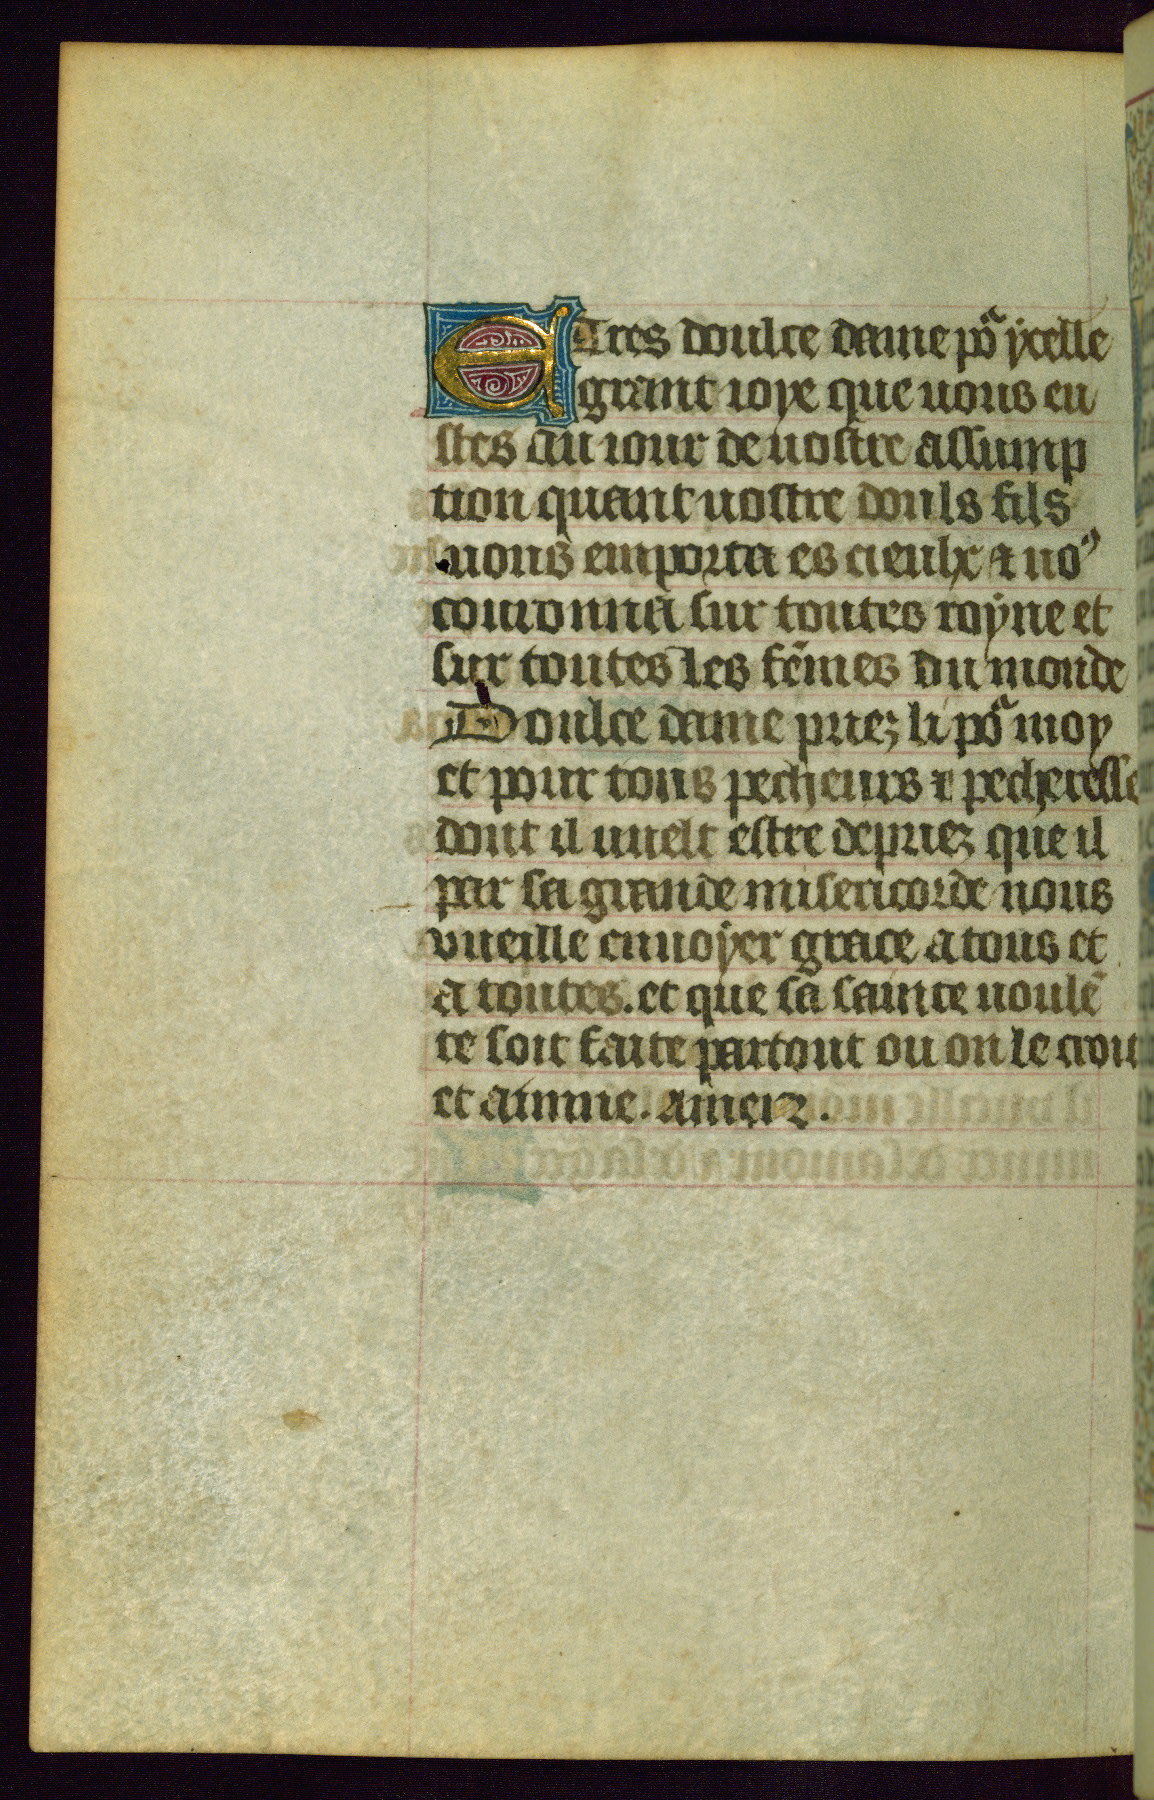 E Tres doulce dame poᷓ ẏcelle
grant ioye que uous eu
stes au iour de uostre assump
tion quant uostre douls fils
uous emporta es cieulx ⁊ uoꝰ
couronna sur toutes roẏne et
sur toutes les fēmes du monde
Doulce dame priez li poᷓ moy
et pour tous pecheurs ⁊ pecheresse
dont il uuelt estre depriez que il
par sa grande misericorde nous
vueille enuoẏer grace a tous et
a toutes. et que sa sainte uoulē
te soit faite partout ou on le croit
et aimme. amen.